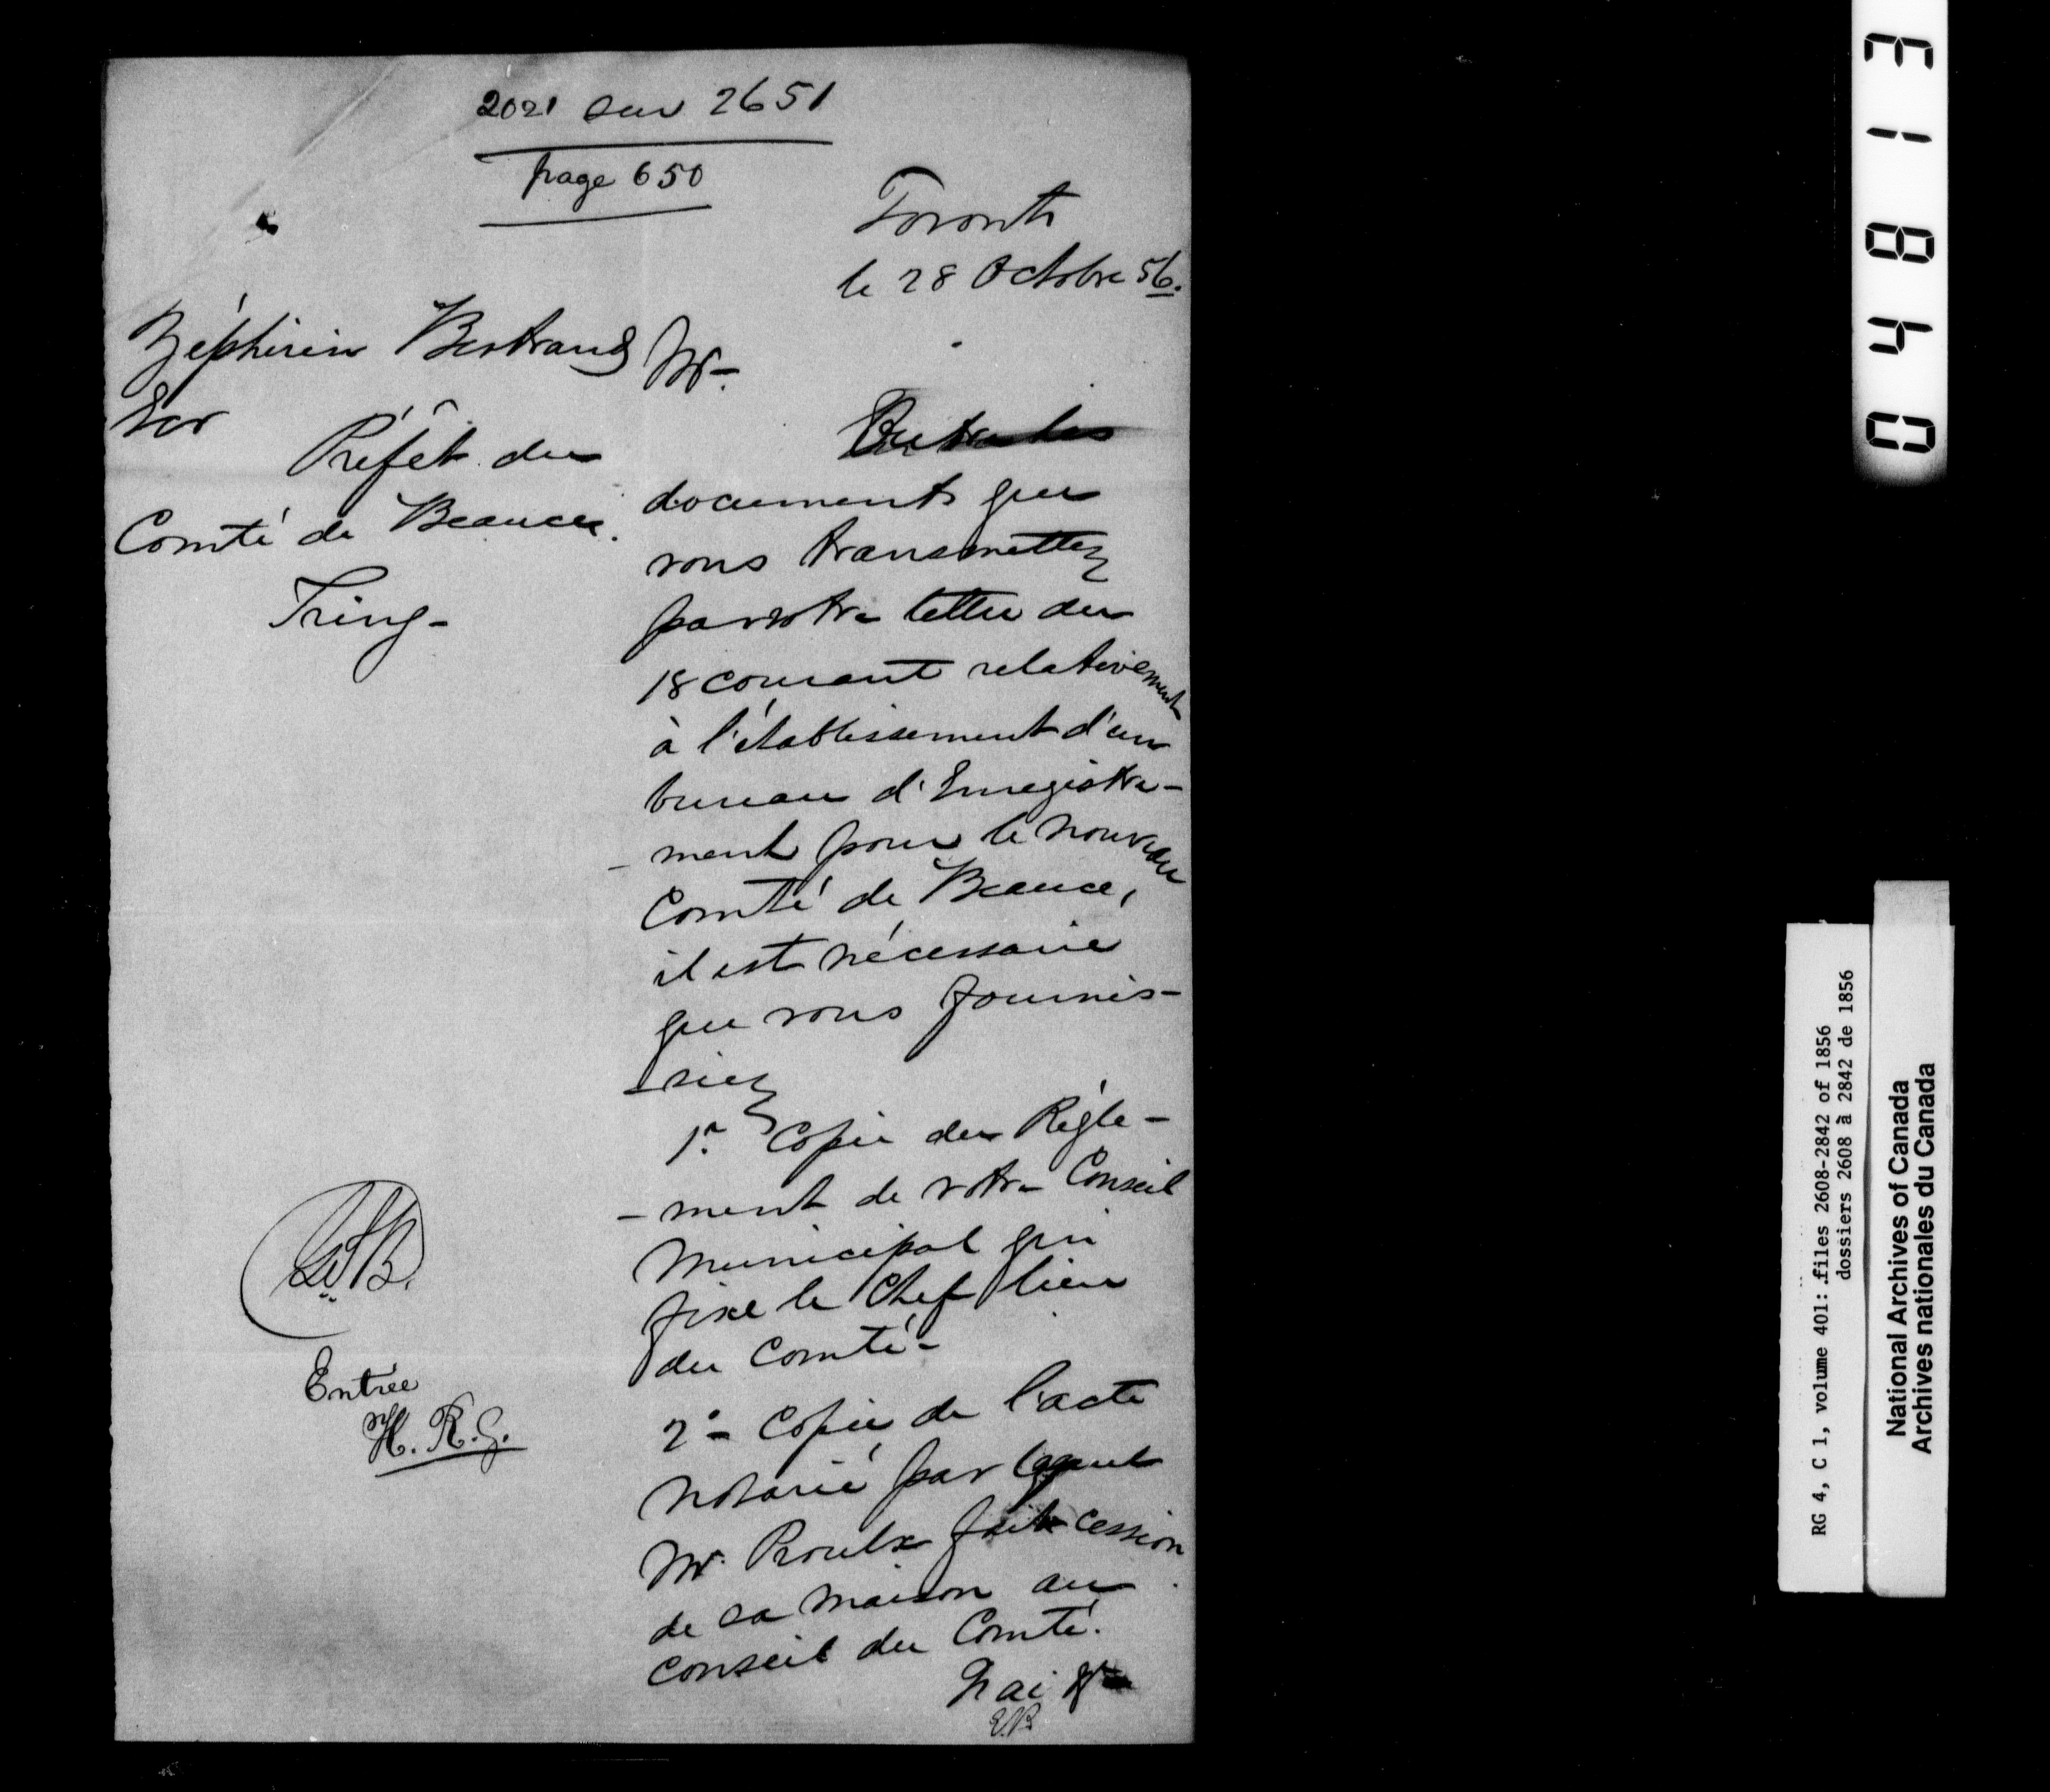 2021 sur 2651
page 650
Toronto
le 28 Octobre 56.
Zéphirin Bertrand
Ecr
Préfêt du
Comté de Beauce.
Tring-
Mr-
Outre les
documents que
vous transmettez
par votre lettre du
18 courant relativement
à l'établissement d'un
bureau d'Enregistre-
-ment pour le nouveau
Comté de Beauce,
il est nécessaire
que vous fournis-
-siez
1º Copie du Règle-
-ment de votre Conseil
Municipal qui
fixe le Chef lieu
du Comté-
2º- Copie de l'acte
notarié par lequel
Mr. Proulx fait cession
de sa maison au
conseil du Comté.
J'ai &
E.P.
Entrée
H. R. G.
04813
RG 4, C 1, volume 401: files 2608-2842 of 1856
dossiers 2608 à 2842 de 1856
National Archives of Canada
Archives nationales du Canada